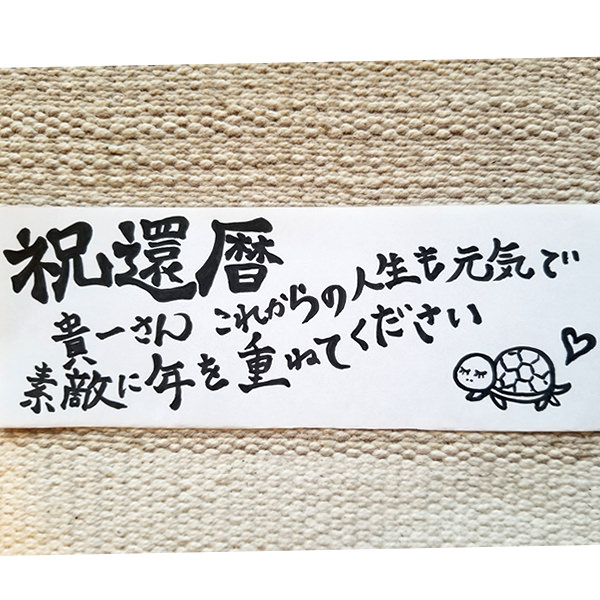 祝還暦
貴一さん これからの人生も元気で
素敵に年を重ねてください